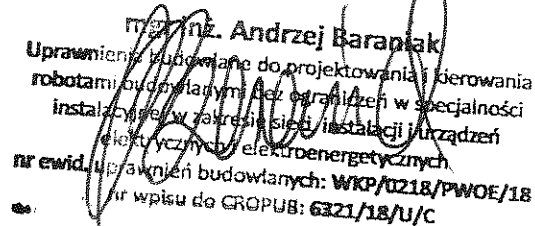 mgr inż. Andrzej Baraniak
Uprawnienia budowlane do projektowania i kierowania
robotami budowlanymi bez ograniczeń w specjalności
instalacyjnej w zakresie sieci, instalacji i urządzeń
elektrycznych i elektroenergetycznych
nr ewid. uprawnień budowlanych: WKP/0218/PWOE/18
nr wpisu do CROPUB: 6321/18/U/C